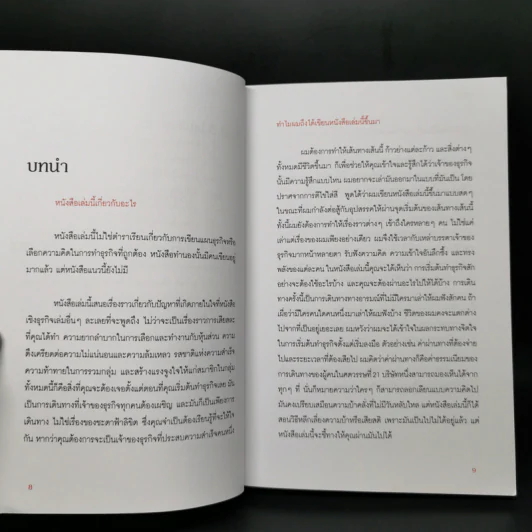 บทนำ
หนังสือเล่มนี้เกี่ยวกับอะไร
หนังสือเล่มนี้ไม่ใช่ตำราเรียนเกี่ยวกับการเขียนแผนธุรกิจหรือ
เลือกความคิดในการทำธุรกิจที่ถูกต้อง หนังสือทำนองนั้นมีคนเขียนอยู่
มากแล้ว แต่หนังสือแนวนี้ยังไม่มี
หนังสือเล่มนี้เสนอเรื่องราวเกี่ยวกับปัญหาที่เกิดภายในใจที่หนังสือ
เชิงธุรกิจเล่มอื่นๆ ละเลยที่จะพูดถึง ไม่ว่าจะเป็นเรื่องราวการเสียสละ
ที่คุณได้ทำ ความยากลำบากในการเลือกและทำงานกับหุ้นส่วน ความ
ตึงเครียดต่อความไม่แน่นอนและความล้มเหลว รสชาติแห่งความสำเร็จ
ความท้าทายในการรวมกลุ่ม และสร้างแรงจูงใจให้แก่สมาชิกในกลุ่ม
ทั้งหมดนี้ก็คือสิ่งที่คุณจะต้องเจอตั้งแต่ตอนที่คุณเริ่มต้นทำธุรกิจเลย มัน
เป็นการเดินทางที่เจ้าของธุรกิจทุกคนต้องเผชิญ และมันก็เป็นเพียงการ
เดินทาง ไม่ใช่เรื่องของชะตาฟ้าลิขิต ซึ่งคุณจำเป็นต้องเรียนรู้ที่จะให้รัก
กัน หากว่าคุณต้องการจะเป็นเจ้าของธุรกิจที่ประสบความสำเร็จคนหนึ่ง
8
ทำไมผมถึงได้เขียนหนังสือเล่มนี้ขึ้นมา
ผมต้องการทำให้เส้นทางเส้นนี้ ก้าวย่างแต่ละก้าว และสิ่งต่างๆ
ทั้งหมดมีชีวิตขึ้นมา ก็เพื่อช่วยให้คุณเข้าใจและรู้สึกได้ว่าเจ้าของธุรกิจ
นั้นมีความรู้สึกแบบไหน ผมอยากจะเล่ามันออกมาในแบบที่มันเป็น โดย
ปราศจากการตีไข่ใส่สี พูดได้ว่าผมเขียนหนังสือเล่มนี้ขึ้นมาแบบสดๆ
ในขณะที่ผมกำลังต่อสู้กับอุปสรรคให้ผ่านจุดเริ่มต้นของเส้นทางเส้นนี้
ทั้งนี้ผมยังต้องการทำให้เรื่องราวต่างๆ เข้าถึงใครหลายๆ คน ไม่ใช่แค่
เล่าแต่เรื่องของผมเพียงอย่างเดียว ผมจึงใช้เวลากับเหล่าบรรดาเจ้าของ
ธุรกิจมากหน้าหลายตา รับฟังความคิด ความเข้าใจอันลึกซึ้ง และทรง
พลังของแต่ละคน ในหนังสือเล่มนี้คุณจะได้เห็นว่า การเริ่มต้นทำธุรกิจสัก
อย่างจะต้องใช้อะไรบ้าง และคุณจะต้องผ่านอะไรไปให้ได้บ้าง การเดิน
ทางครั้งนี้เป็นการเดินทางทางอารมณ์ที่ไม่มีใครมาเล่าให้ผมฟังสักคน ถ้า
เมื่อก่อนมีใครสักคนมาเล่าให้ผมฟังบ้าง ชีวิตของผมคงจะแตกต่าง
ไปจากที่เป็นอยู่เยอะเลย ผมหวังว่าผมจะได้เข้าใจในผลกระทบทางจิตใจ
ในการเริ่มต้นทำธุรกิจตั้งแต่เริ่มลงมือ ตัวอย่างเช่น ค่าผ่านทางที่ต้องจ่าย
ไปและระยะเวลาที่ต้องเสียไป ผมคิดว่าค่าผ่านทางก็คือค่าธรรมเนียมของ
การเดินทางของผู้คนในศตวรรษที่ 21 บริษัทหนึ่งสามารถมองเห็นได้จาก
ทุกๆ ที่ นั่นก็หมายความว่าใครๆ ก็สามารถลอกเลียนแบบความคิดไป
มันคงเปรียบเสมือนความบ้าคลั่งที่ไม่มีวันหลับใหล แต่หนังสือเล่มนี้ก็ได้
สอนวิธีหลีกเลี่ยงความบ้าหรือเสียสติ เพราะมันเป็นไปไม่ได้อยู่แล้ว แต่
หนังสือเล่มนี้จะชี้ทางให้คุณผ่านมันไปได้
9